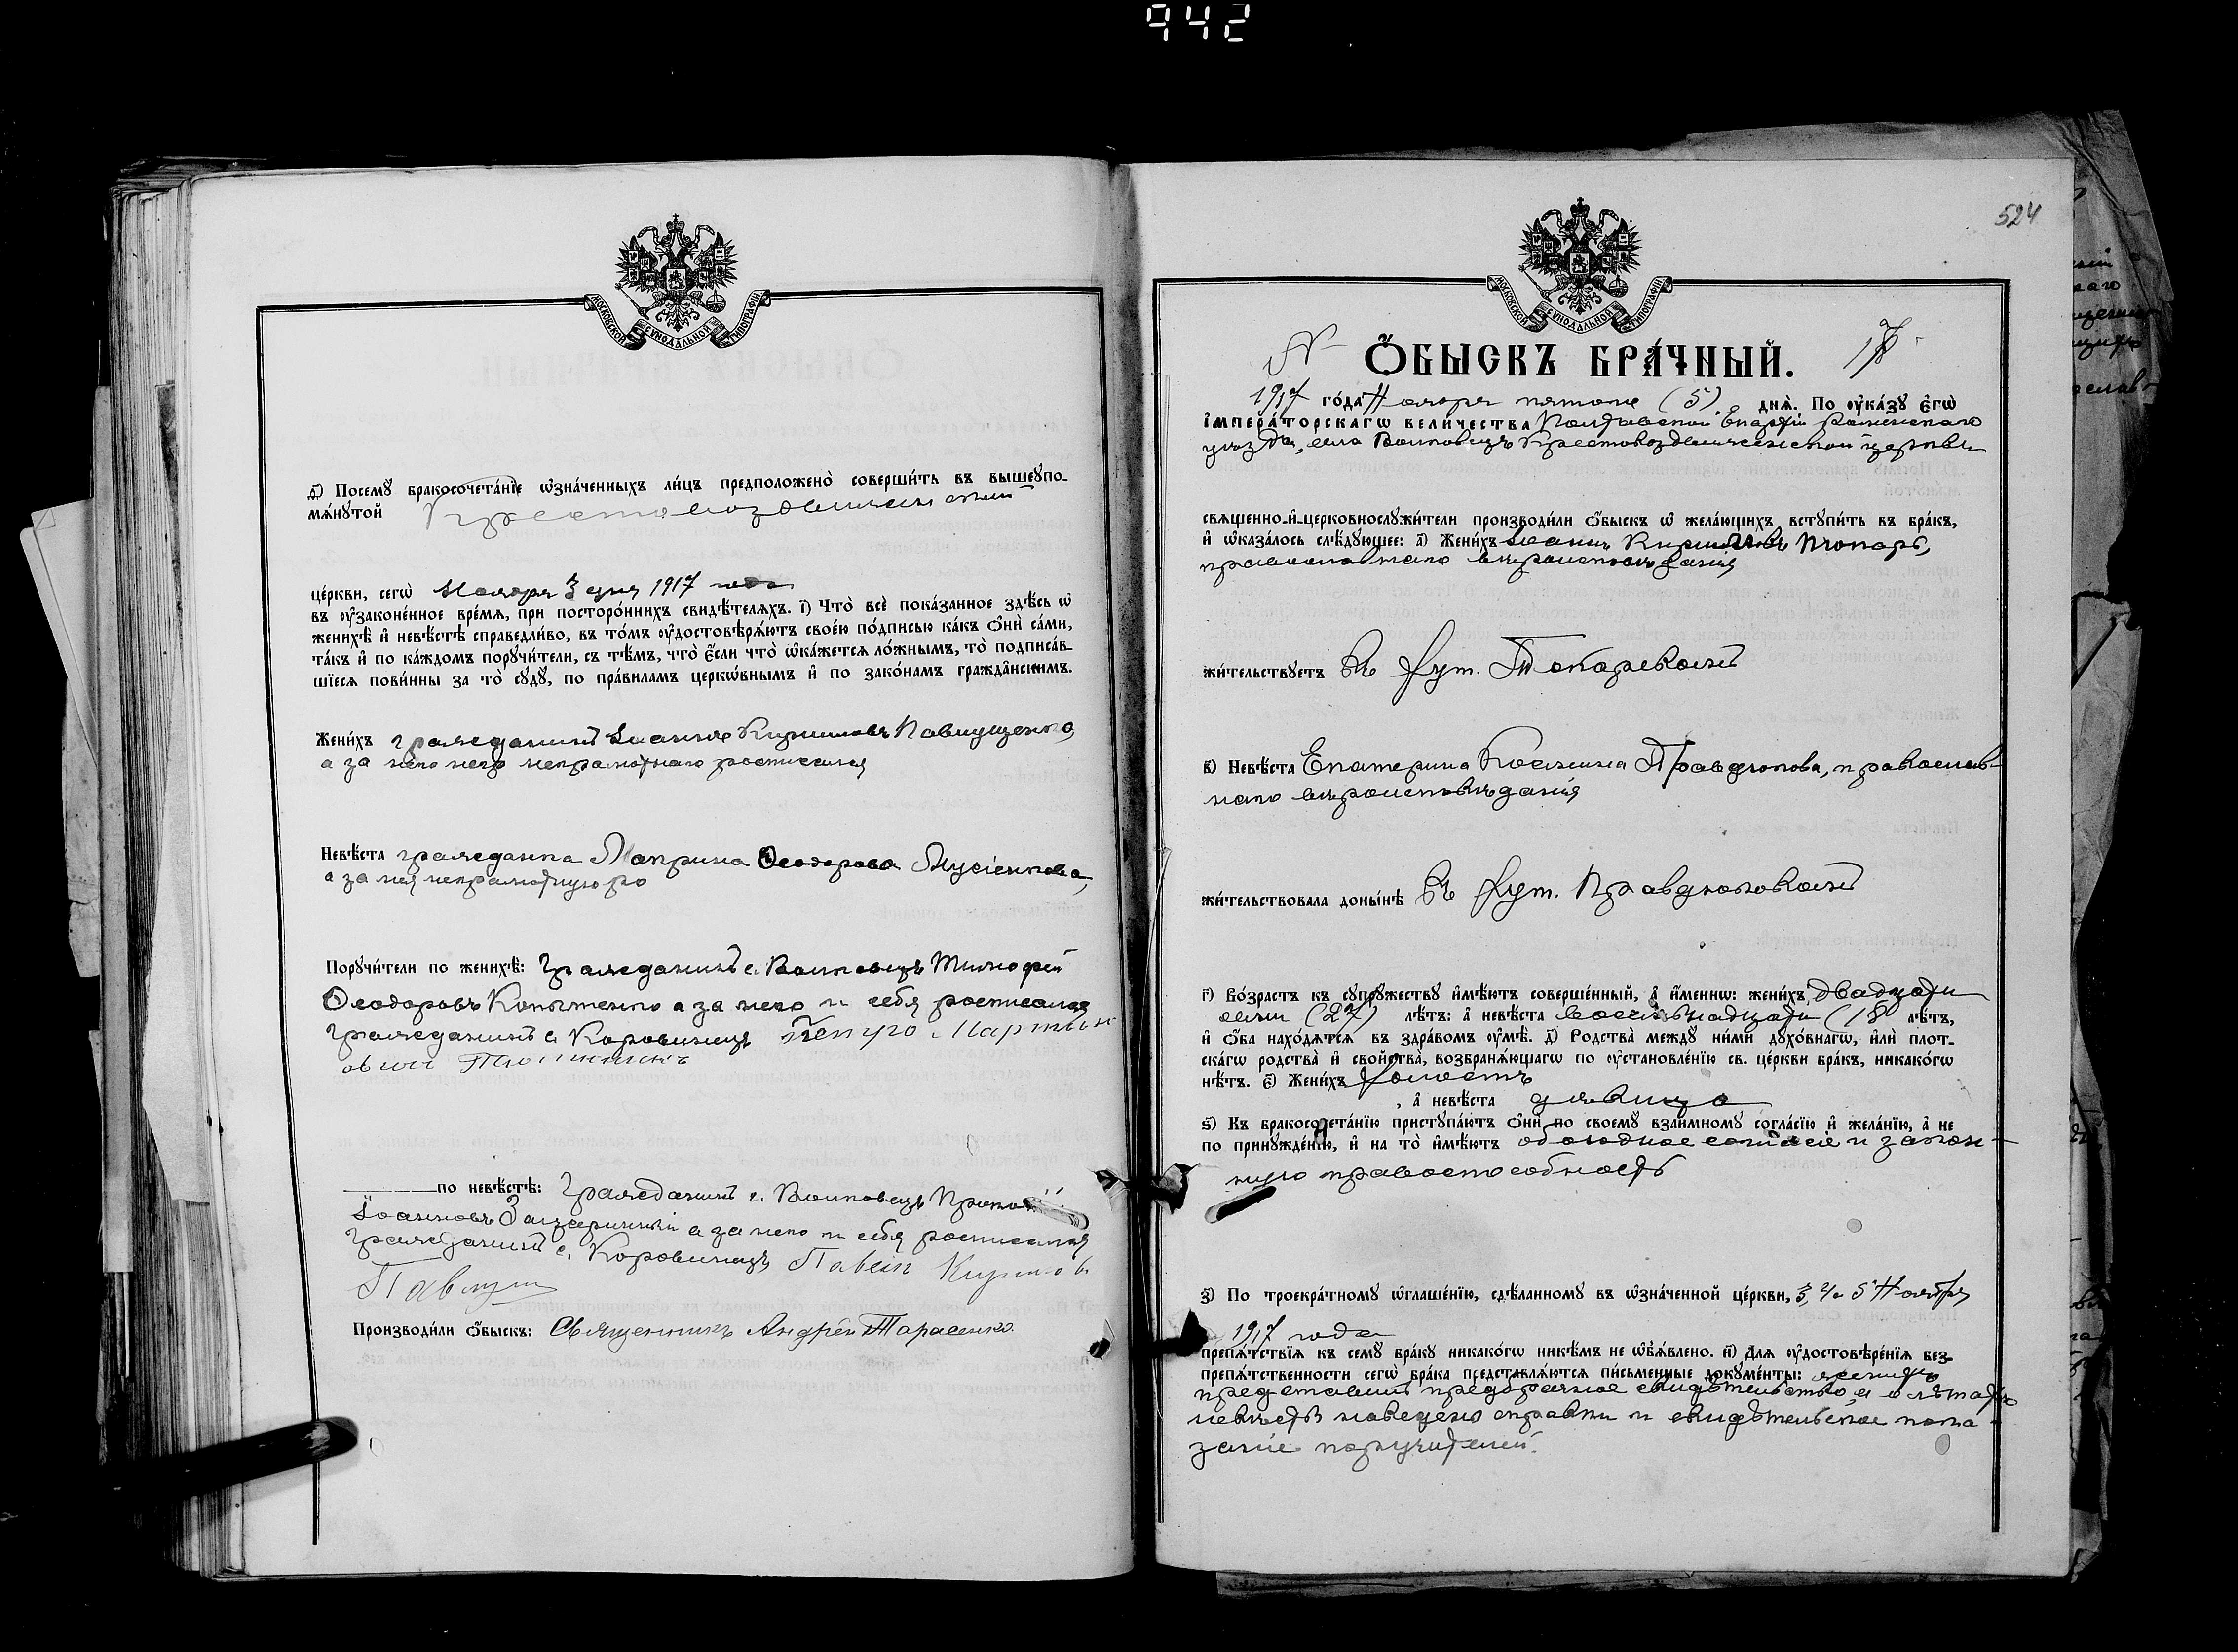 942
МОСКОВСКОЙ СѴНОДАЛЬНОЙ ТИПОГРАФІИ
ѳ҃) Посемꙋ бракосочета́нїе ѡ҆зна́ченныхъ ли́цъ предположено̀ соверши́ть въ вышеꙋпо-
мѧ́нꙋтой Крестовоздвиженской
це́ркви, сегѡ̀ Ноября 3 дня 1917 года
въ ᲂу҆зако́ненное вре́мѧ, при посторо́ннихъ свидѣ́телѧхъ. і҃) Что̀ всѐ пока́занное здѣ́сь ѡ҆
женихѣ̀ и҆ невѣ́стѣ справедли́во, въ то́мъ ᲂу҆достовѣрѧ́ютъ свое́ю по́дписью ка́къ ѻ҆нѝ са́ми,
та́къ и҆ по ка́ждомъ порꙋчи́тели, съ тѣ́мъ, что̀ є҆́сли что̀ ѡ҆ка́жетсѧ ло́жнымъ, то̀ подписа́в-
шїесѧ пови́нны за то̀ сꙋдꙋ̀, по пра́виламъ церкѡ́внымъ и҆ по зако́намъ гражда̂нскимъ.
Жени́хъ гражданинъ Іоаннъ Кириловъ
а за него неграмотнаго росписался
Невѣ́ста гражданка Ѳеодорова Мусіенкова,
а за нея неграмотную ро
Порꙋчи́тели по женихѣ̀: Гражданинъ с. Волковецъ Тимофей
Ѳеодоровъ Копытенко а за него и себя росписался
гражданинъ с. Коровинецъ Петро Мартын
ович
по невѣ́стѣ: Гражданинъ с. Волковецъ
Іоанновъ а за него и себя росписался
гражданинъ с. Коровинецъ Павелъ Кирилов
Производи́ли ѻ҆́быскъ: Священникъ Андрей Тарасенко.
524
МОСКОВСКОЙ СѴНОДАЛЬНОЙ ТИПОГРАФІИ
№
Ѻ҆́БЫСКЪ БРА́ЧНЫЙ.
1917 го́да Ноября пятого (5) днѧ̀. По ᲂу҆ка́зꙋ є҆гѡ̀
і҆мпера́торскагѡ вели́чества Полтавской Епархіи Роменскаго
уѣзда, села Волковецъ Крестовоздвиженской церкви
свѧщенно-и҆-церковнослꙋжи́тели производи́ли ѻ҆́быскъ ѡ҆ жела́ющихъ встꙋпи́ть въ бра́къ,
и҆ ѡ҆каза́лось слѣ́дꙋющее: а҃) Жени́хъ Іоаннъ Кириловъ
православнаго вѣроисповѣданія
жи́тельствꙋетъ въ хут. Токаревомъ
в҃) Невѣ́ста Екатерина Косьмина Правдюкова, православ-
наго вѣроисповѣданія
жи́тельствовала доны́нѣ въ хут. Правдюковомъ
г҃) Во́зрастъ къ сꙋпрꙋ́жествꙋ и҆мѣ́ютъ соверше́нный, а҆̀ и҆́меннѡ: жени́хъ двадцати
семи (27) лѣ́тъ: а҆̀ невѣ́ста восемнадцати (18 лѣ́тъ,
и҆ ѻ҆́ба нахо́дѧтсѧ въ здра́вомъ ᲂу҆мѣ̀. д҃) Родства̀ междꙋ̀ ни́ми дꙋхо́внагѡ, и҆лѝ плот-
ска́гѡ родства̀ и҆ сво́йства̀, возбранѧ́ющагѡ по ᲂу҆становле́нїю св. це́ркви бра́къ, никако́гѡ
нѣ́тъ. є҃) Жени́хъ холостъ
, а҆̀ невѣ́ста дѣвица
ѕ҃) Къ бракосочета́нїю пристꙋпа́ютъ ѻ҆нѝ по своемꙋ̀ взаи́мномꙋ согла́сїю и҆ жела́нїю, а҆̀ не
по принꙋжде́нїю, и҆ на то̀ и҆мѣ́ютъ обоюдное согласіе и закон-
ную правоспособность
з҃) По троекра́тномꙋ ѡ҆глаше́нїю, сдѣ́ланномꙋ въ ѡ҆зна́ченной це́ркви, 3, 4 и 5 Ноября
1917 года
препѧ́тствїѧ къ семꙋ̀ бра́кꙋ никако́гѡ никѣ́мъ не ѡ҆б̾ѧ́влено. и҃) Длѧ ᲂу҆достовѣре́нїѧ без-
препѧ́тственности сегѡ̀ бра́ка представлѧ́ютсѧ пи́сьменные докꙋме́нты: женихъ
представилъ предбрачное свидѣтельство, а о лѣтахъ
невѣсты наведено справки и свидѣтельское пока-
заніе поручителей.